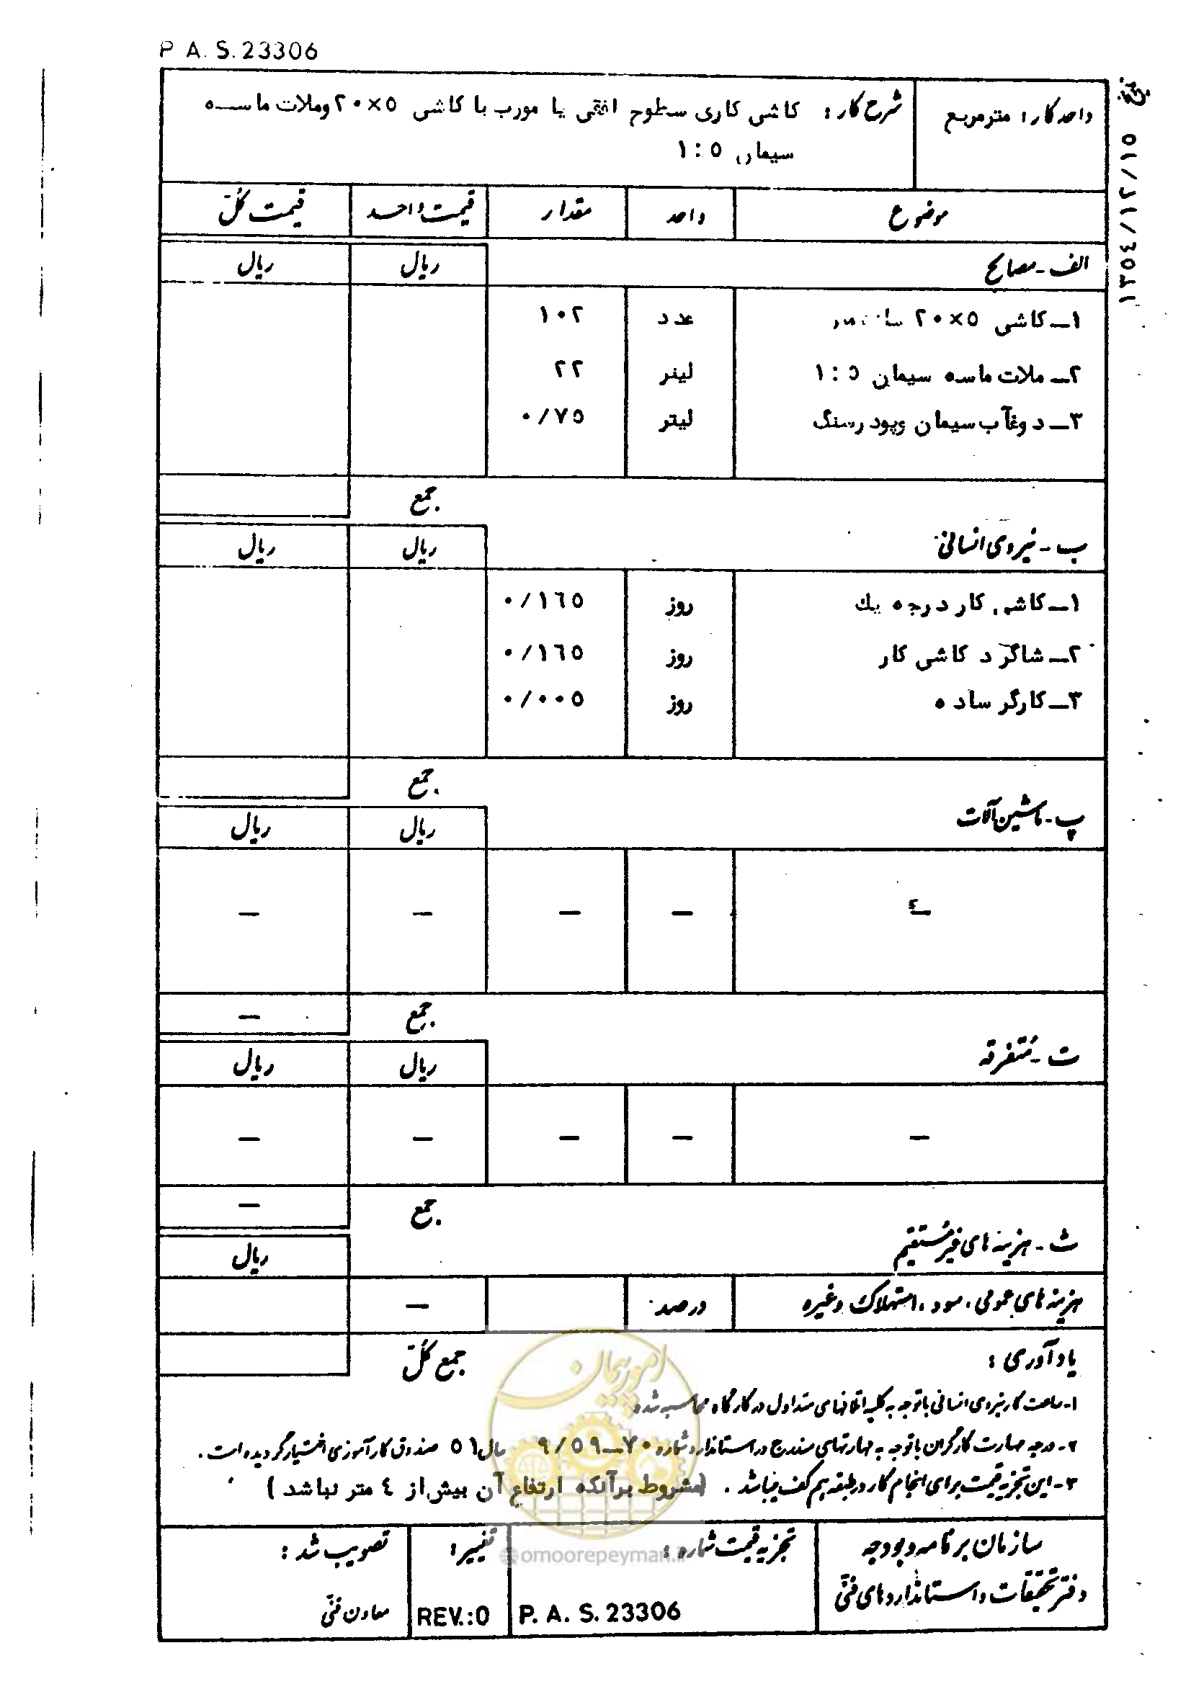 P A. S. 23306
تاریخ ١٣٥٤/١٢/١٥
واحد کار: مترمربع
شرح کار: کاشی کاری سطوح افقی یا مورب با کاشی ٥×٢٠ وملات ماسه
سیمان ١:٥
موضوع واحد مقدار قیمت واحد قیمت کل
الف - مصالح ریال ریال
١ـ کاشی ٥×٢٠ عدد ١٠٢
٢ـ ملات ماسه سیمان ١:٥ لیتر ٢٢
٣ـ دوغآب سیمان وپودرسنگ لیتر ٠/٧٥
جمع
ب - نیروی انسانی ریال ریال
١ـ کاشی کار درجه یك روز ٠/١٦٥
٢ـ شاگرد کاشی کار روز ٠/١٦٥
٣ـ کارگر ساده روز ٠/٠٠٥
جمع
پ - ماشین آلات ریال ریال
٤ـ — — — —
جمع —
ت - متفرقه ریال ریال
— — — — —
جمع —
ث - هزینه های غیرمستقیم ریال
هزینه های عمومی، سود، استهلاک وغیره درصد —
یادآوری: جمع کل
١- ساعت کار نیروی انسانی باتوجه به کلیه اتلافهای متداول در کارگاه محاسبه شده
٢- درجه مهارت کارگران باتوجه به مهارتهای مندرج در استاندارد شماره ٧٠ـ٩/٥٩ سال ٥١ صندوق کارآموزی اختیار گردیده است.
٣- این تجزیه قیمت برای انجام کار در طبقه هم کف میباشد. (مشروط برآنکه ارتفاع آن بیش از ٤ متر نباشد)
امور پیمان
omoorepeyman.ir
سازمان برنامه و بودجه
دفتر تحقیقات و استانداردهای فنی
تجزیه قیمت شماره:
P. A. S. 23306
تغییر:
REV.:0
تصویب شد:
معاون فنی